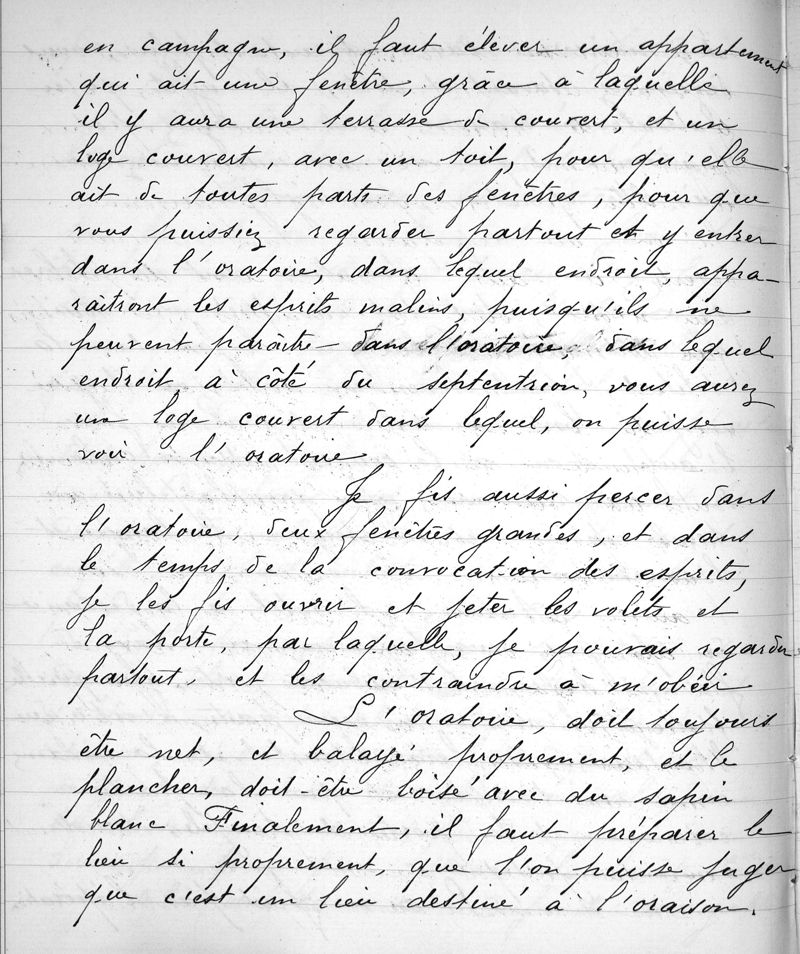 en campagne, il faut élever un appartement
qui ait une fenêtre, grâce à laquelle
il y aura une terrasse de couvert, et un
loge couvert, avec un toit, pour qu'elle
ait de toutes parts des fenêtres, pour que
vous puissiez regarder partout et y entrer
dans l'oratoire, dans lequel endroit, appa-
raîtront les esprits malins, puisqu'ils ne
peuvent paraître dans l'oratoire, dans lequel
endroit à côté du septentrion, vous aurez
un loge couvert dans lequel, on puisse
voir l'oratoire
Je fis aussi percer dans
l'oratoire, deux fenêtres grandes, et dans
le temps de la convocation des esprits,
je les fis ouvrir et jeter les volets et
la porte, par laquelle, je pouvais regarder
partout, et les contraindre à m'obéir
L'oratoire, doit toujours
être net, et balayé proprement, et le
plancher, doit-être boisé avec du sapin
blanc Finalement, il faut préparer le
lieu si proprement, que l'on puisse juger
que c'est un lieu destiné à l'oraison.